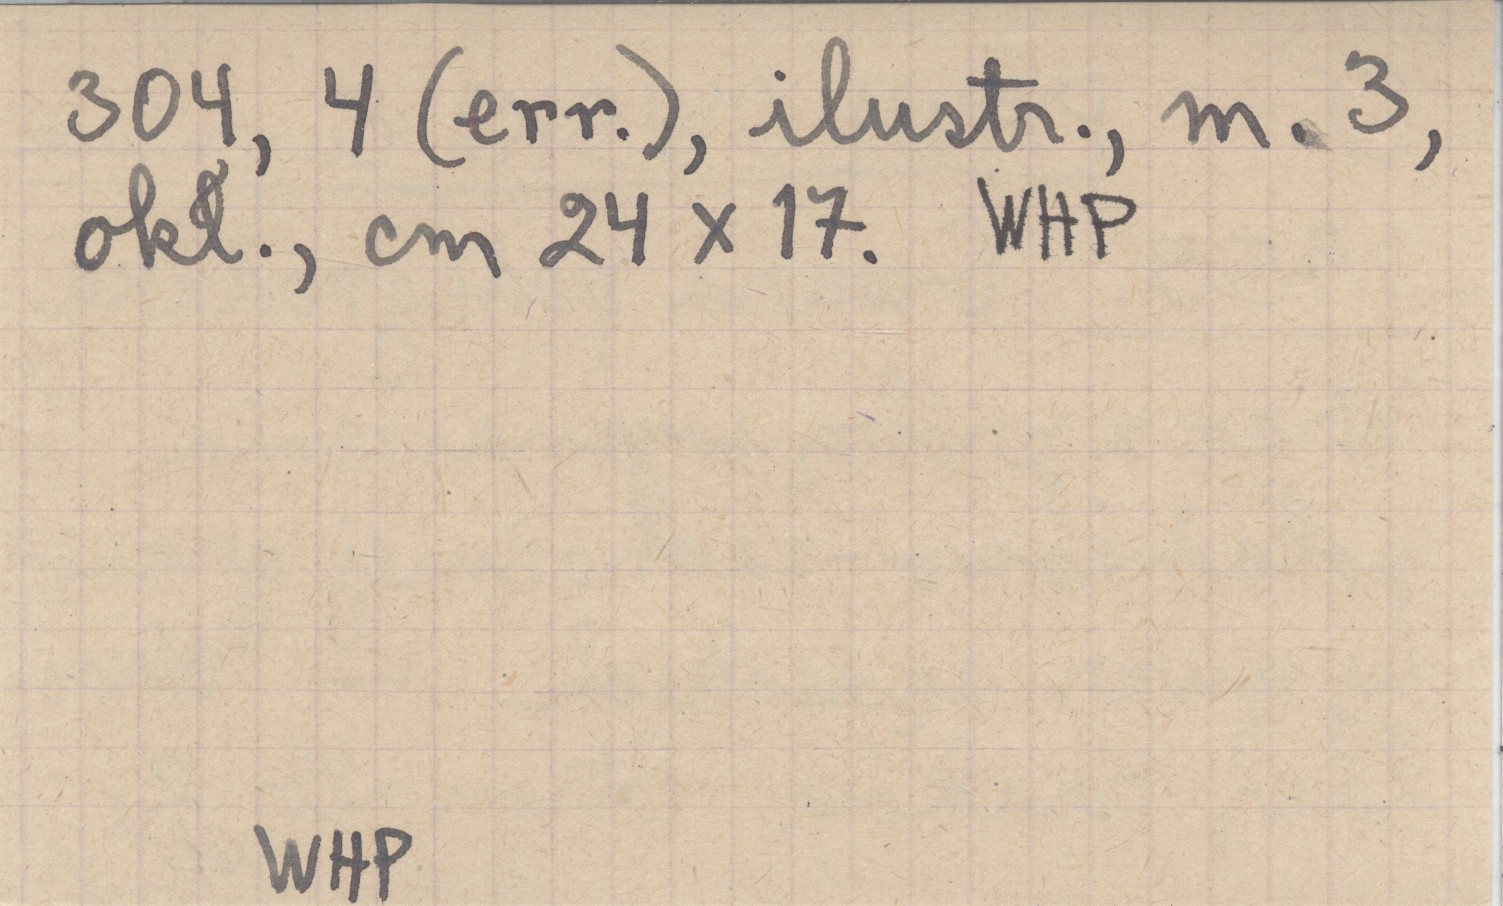 304, 4 (err.), ilustr., m. 3,
okł., cm 24 x 17. WHP
WHP